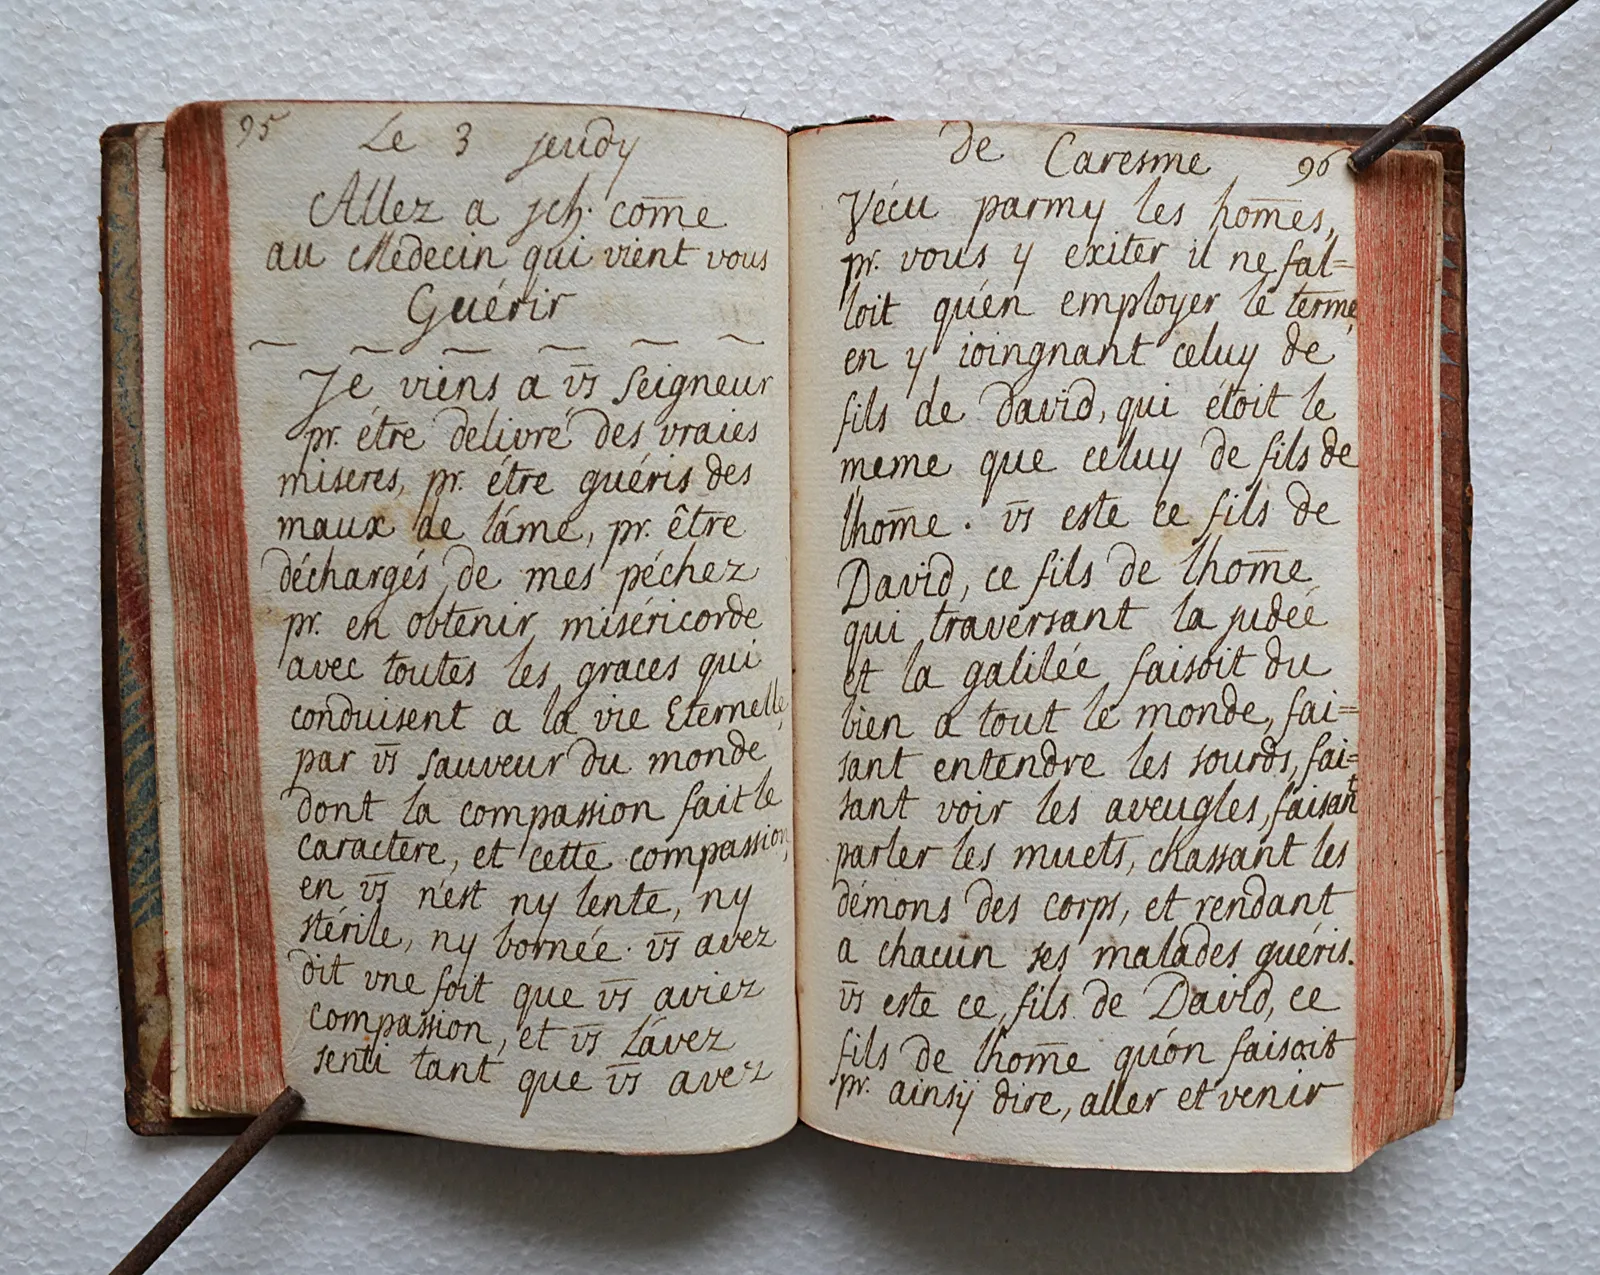 95
Le 3 jeudy
Allez a jch. com̄e
au Medecin qui vient vous
Guérir
Je viens a vs̄ Seigneur
pr. étre delivré des vraies
miseres, pr. étre guéris des
maux de láme, pr. être
déchargés de mes péchez
pr. en obtenir miséricorde
avec toutes les graces qui
conduisent a la vie Eternelle,
par vs̄ sauveur du monde
dont la compassion fait le
caractere, et cette compassion,
en vs̄ n'est ny lente, ny
stérile, ny bornée. vs̄ avez
dit vne foit que vs̄ aviez
compassion, et vs̄ l'avez
senti tant que vs̄ avez
de Caresme
96
Vécu parmy les hom̄es,
pr. vous y exiter il ne fal=
loit qu'en employer le terme,
en y ioingnant celuy de
fils de David, qui étoit le
meme que celuy de fils de
l'hom̄e. vs̄ este ce fils de
David, ce fils de l'hom̄e
qui traversant la judeé
et la galilée faisoit du
bien a tout le monde, fai=
sant entendre les sourds, fai=
sant voir les aveugles, faisant
parler les muets, chassant les
démons des corps, et rendant
a chacun ses malades guéris.
vs̄ este ce fils de David, ce
fils de l'hom̄e qu'on faisoit
pr. ainsÿ dire, aller et venir